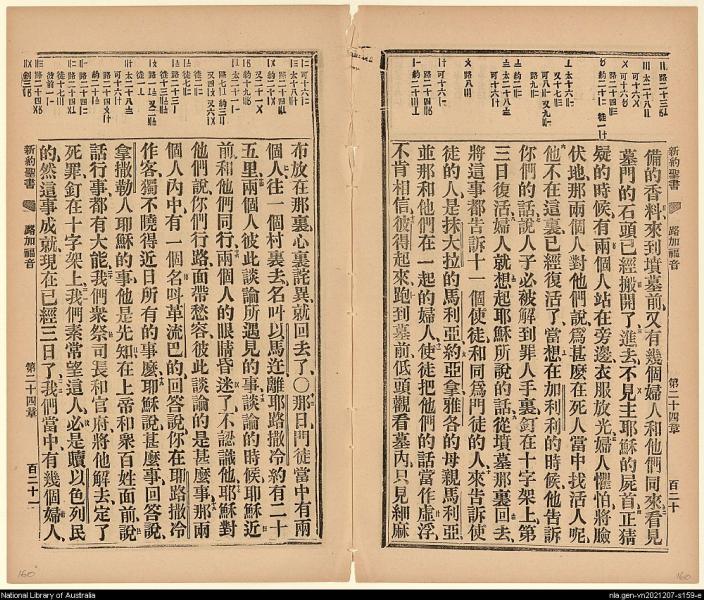 新約聖書
路加福音
第二十四章
百二十
備的香料、來到墳墓前、又有幾個婦人和他們同來、看見
墓門的石頭已經搬開了、進去、不見主耶穌的屍首、正猜
疑的時候、有兩個人站在旁邊、衣服放光、婦人懼怕、將臉
伏地、那兩個人對他們說、爲甚麼在死人當中找活人呢、
他不在這裏、已經復活了、當想在加利利的時候、他告訴
你們的話、說、人子必被解到罪人手裏、釘在十字架上、第
三日復活、婦人就想起耶穌所說的話、從墳墓那裏回去、
將這事都告訴十一個使徒、和同爲門徒的人、來告訴使
徒的人是抹大拉的馬利亞、約亞拿、雅各的母親馬利亞、
並那和他們在一起的婦人、使徒把他們的話當作虛浮、
不肯相信、彼得起來、跑到墓前、低頭觀看墓內、只見細麻
新約聖書
路加福音
第二十四章
百二十一
布放在那裏、心裏詫異、就回去了、○那日門徒當中有兩
個人往一個村裏去、名叫以馬迕、離耶路撒冷約有二十
五里、兩個人彼此談論所遇見的事、談論的時候、耶穌近
前和他們同行、兩個人的眼睛昏迷了、不認識他、耶穌對
他們說、你們行路面帶愁容、彼此談論的是甚麼事、那兩
個人內中有一個名叫革流巴的、回答說、你在耶路撒冷
作客、獨不曉得近日所有的事麼、耶穌說、甚麼事、回答說、
拿撒勒人耶穌的事、他是先知、在上帝和衆百姓面前、說
話行事都有大能、我們衆祭司長和官府、將他解去、定了
死罪、釘在十字架上、我們素常望這人必是贖以色列民
的、然這事成就、現在已經三日了、我們當中有幾個婦人、
160
160
National Library of Australia
nla.gen-vn2021207-s159-e